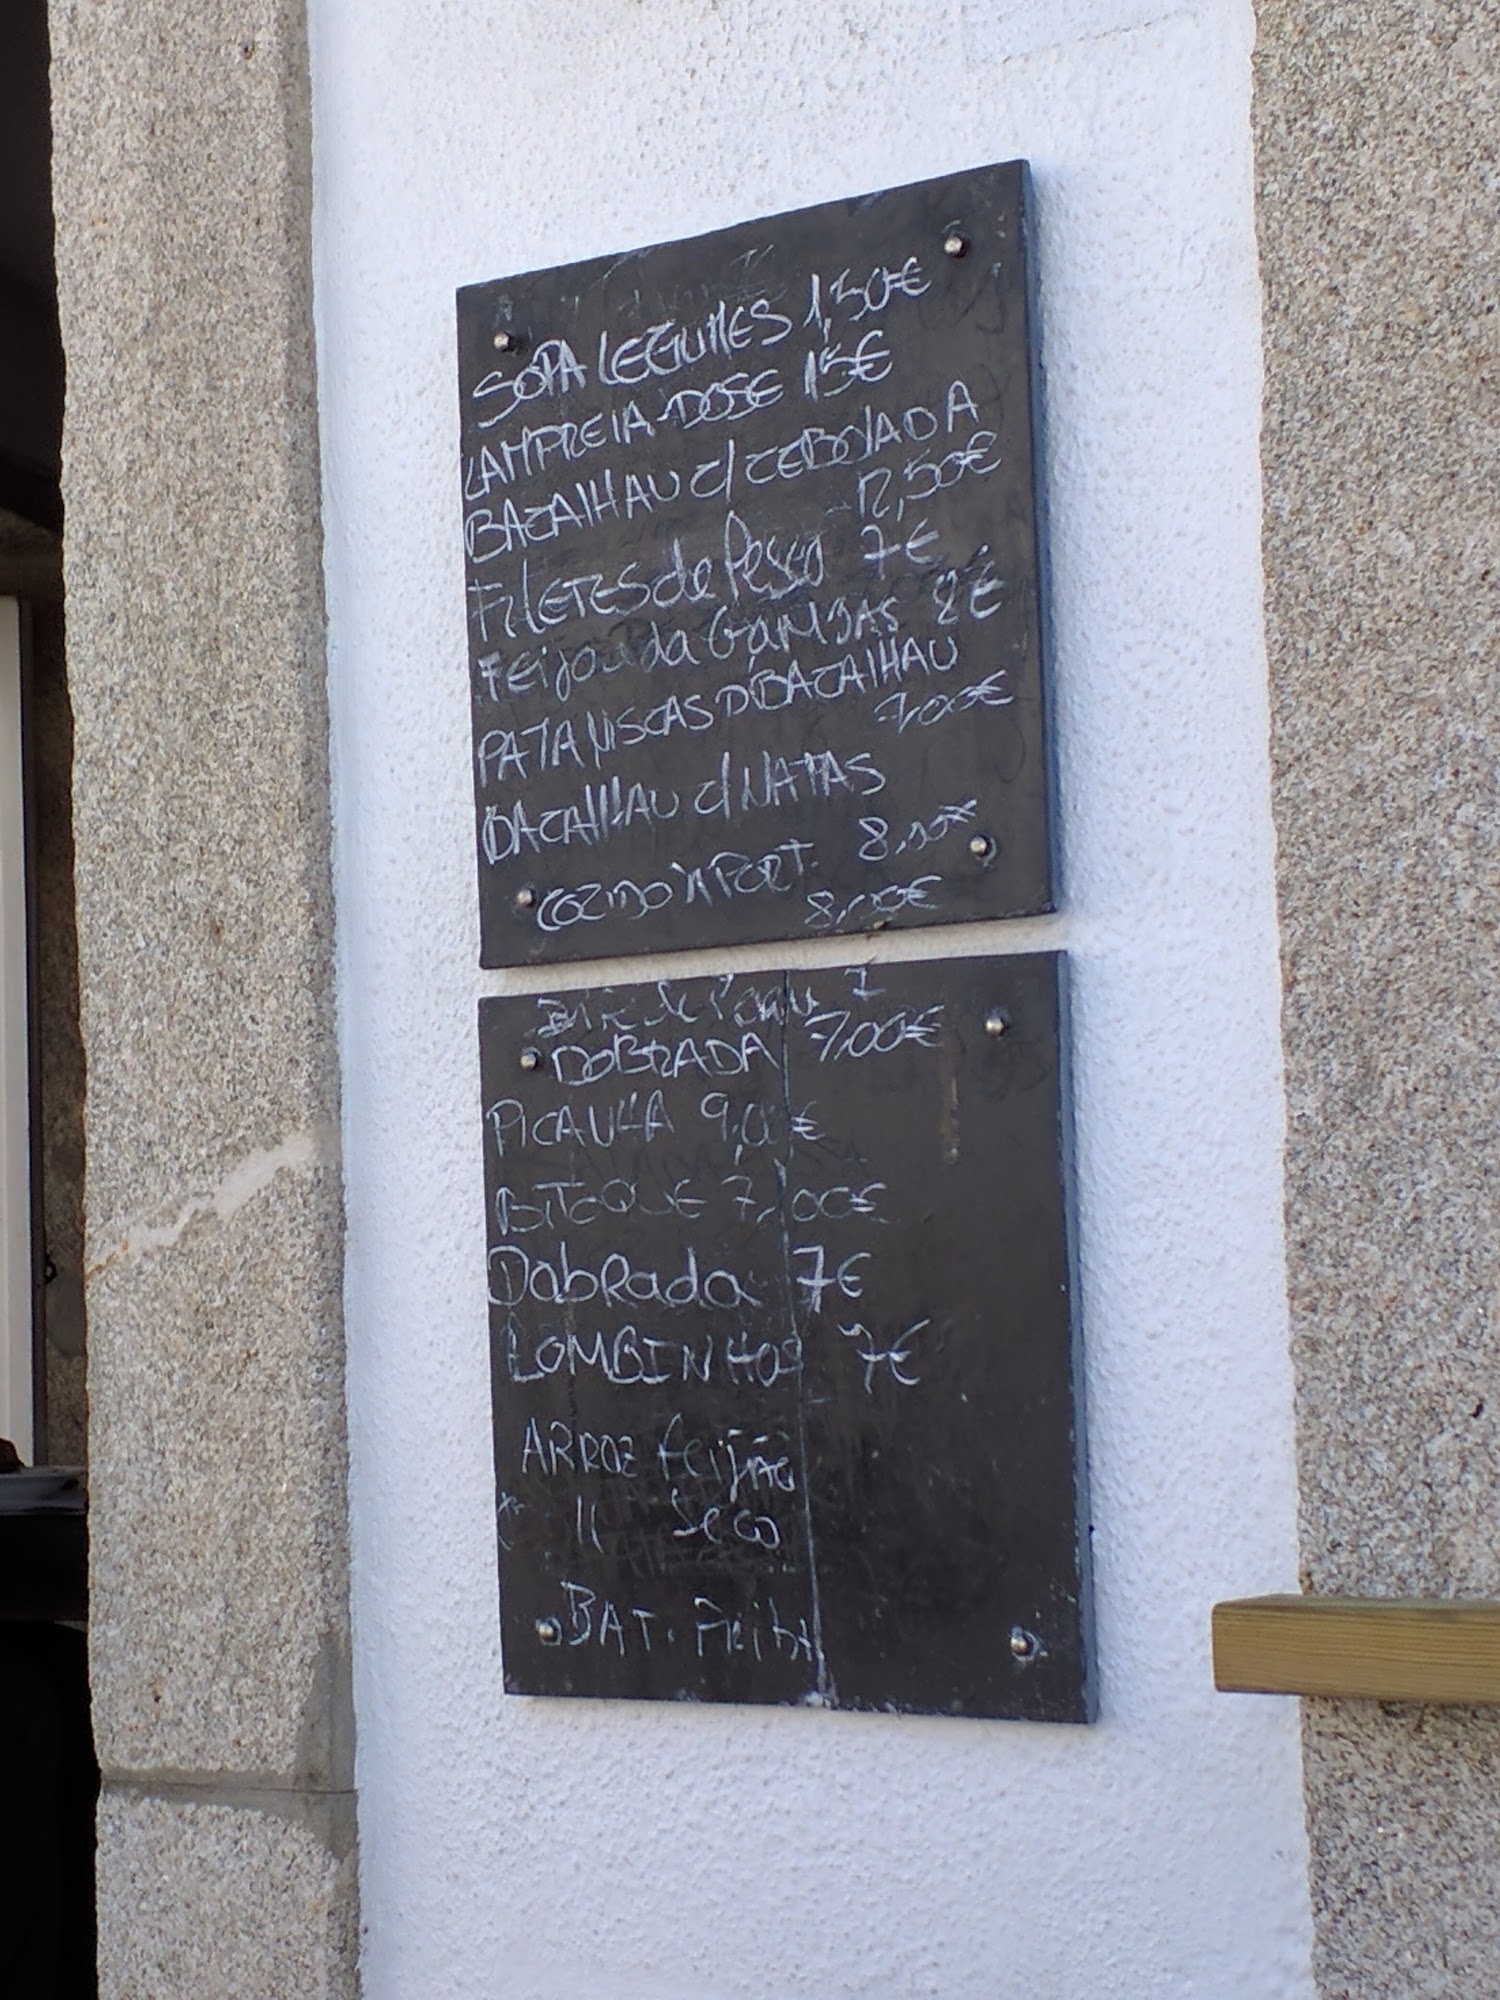 SOPA LEGUMES 1,50€
LAMPREIA-DOSE 15€
BACALHAU C/CEBOLADA
12,50€
FILETES de Pescá 7€
Feijoada GAMBAS 8€
PATANISCAS D'BACALHAU
7,00€
BACALHAU C/NATAS
8,00€
COZIDO À PORT.
8,00€
Bife de Peru 7
DOBRADA 7,00€
PICANHA 9,00€
BITOQUE 7,00€
DobRada 7€
LOMBINHOS 7€
ARROZ feijão
* 11 Seco
BAT. Frita